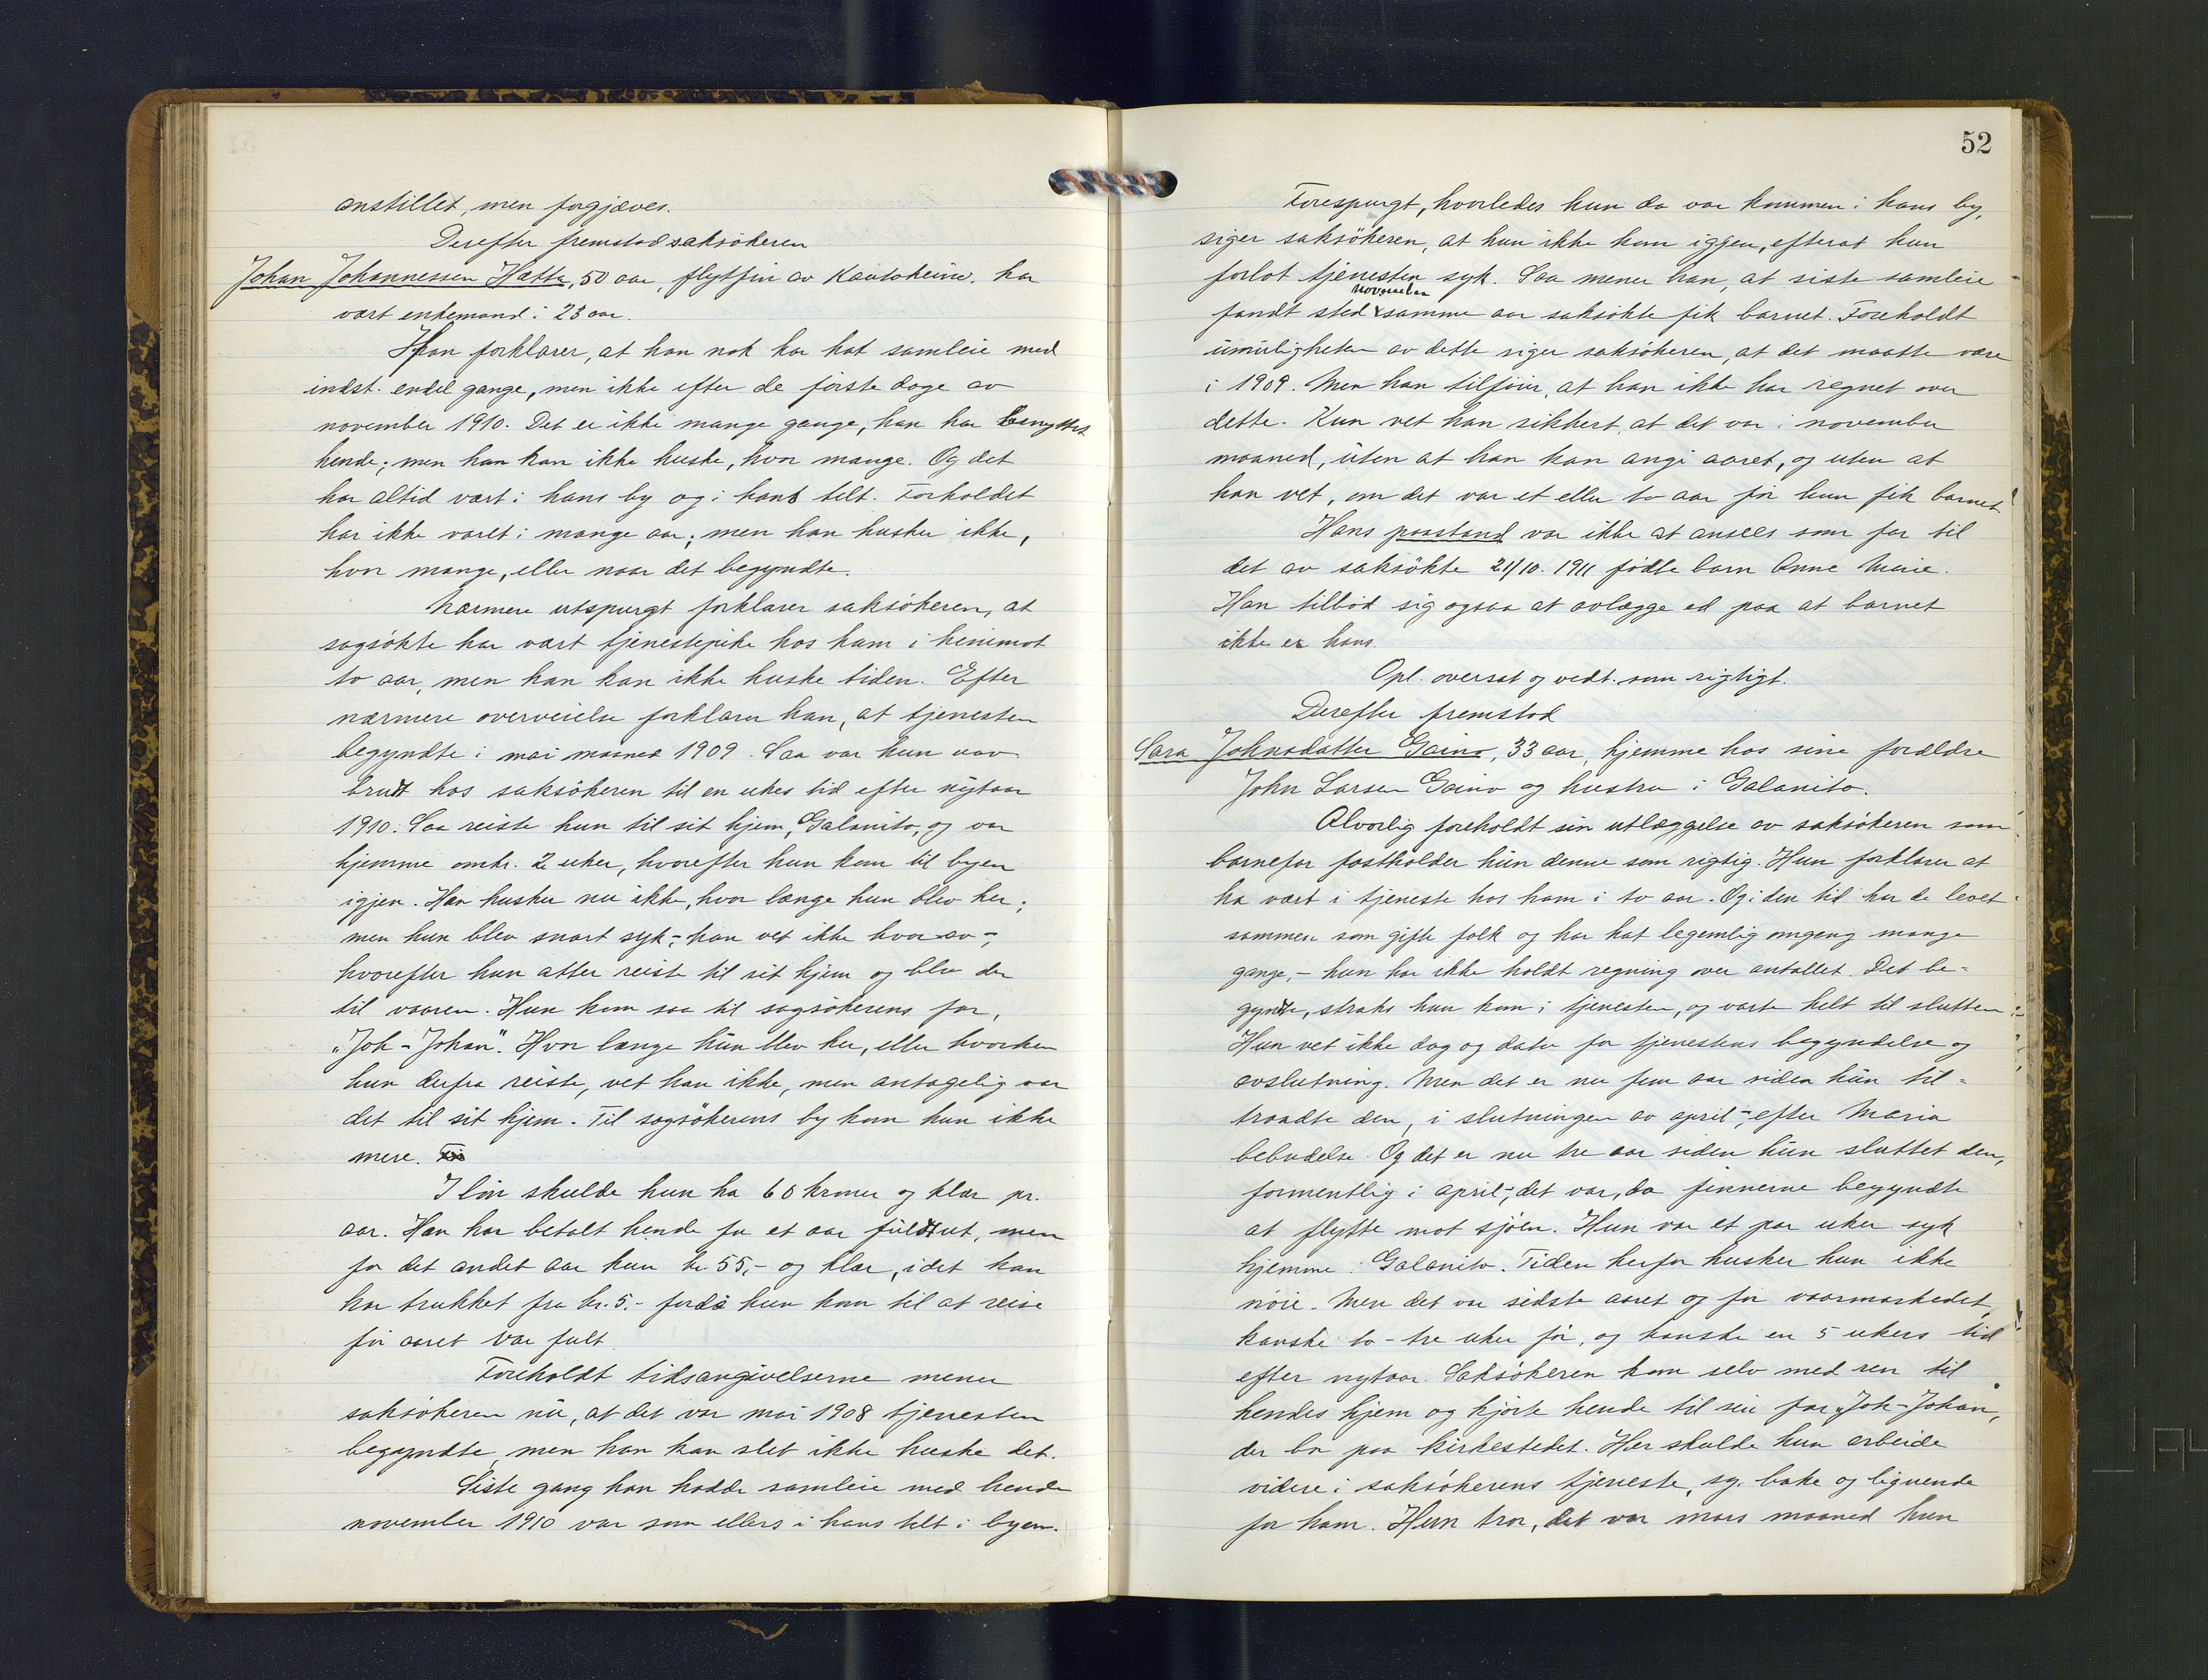 anstillet, men forgjæves.
Derefter fremstod saksökeren
Johan Johannessen Hætta, 50 aar, flytfin av Kautokeino. har
vært enkemand i 23 aar.
Han forklarer, at han nok har hat samleie med
indst. endel gange, men ikke efter de förste dage av
november 1910. Det er ikke mange gange, han har benyttet
hende; men han kan ikke huske, hvor mange. Og det
har altid vært i hans by og i hans telt. Forholdet
har ikke varet i mange aar; men han husker ikke,
hvor mange, eller naar det begyndte.
Nærmere utspurgt forklarer saksökeren, at
sagsökte har vært tjenestepike hos ham i henimot
to aar, men han kan ikke huske tiden. Efter
nærmere overveielse forklarer han, at tjenesten
begyndte i mai maaned 1909. Saa var hun uav
brudt hos saksökeren til en ukes tid efter nytaar
1910. Saa reiste hun til sit hjem, Galanito, og var
hjemme omkr. 2 uker, hvorefter hun kom til byen
igjen. Han husker nu ikke, hvor længe hun blev her;
men hun blev snart syk,- han vet ikke hvorav -,
hvorefter hun atter reiste til sit hjem og blev der
til vaaren. Hun kom saa til sagsökerens far,
"Joh-Johan". Hvor længe hun blev her, eller hvorhen
hun derfra reiste, vet han ikke, men antagelig var
det til sit hjem. Til sagsökerens by kom hun ikke
mere.
I lön skulde hun ha 60 kroner og klær pr.
aar. Han har betalt hende for et aar fuldt ut, men
for det andet aar kun kr 55,- og klær, idet han
har trukket fra kr. 5.- fordi hun kom til at reise
för aaret var fult.
Foreholdt tidsangivelserne mener
saksökeren nu, at det var mai 1908 tjenesten
begyndte, men han kan slet ikke huske det.
Siste gang han hadde samleie med hende
november 1910 var som ellers i hans telt i byen.
52
Forespurgt, hvorledes hun da var kommen i hans by,
siger saksökeren, at hun ikke kom igjen, efterat hun
forlot tjenesten syk. Saa mener han, at siste samleie
november
fandt sted samme aar saksökte fik barnet. Foreholdt
umuligheten av dette siger saksökeren, at det maatte være
i 1909. Men han tilföier, at han ikke har regnet over
dette. Kun vet han sikkert, at det var i november
maaned, uten at han kan angi aaret, og uten at
han vet, om det var et eller to aar för hun fik barnet.
Hans paastand var ikke at ansees som far til
det av saksökte 21/10. 1911 födte barn Anne Marie.
Han tilböd sig ogsaa at avlægge ed paa at barnet
ikke er hans.
Opl. oversat og vedt. som rigtigt.
Derefter fremstod
Sara Johnsdatter Gaino, 33 aar, hjemme hos sine forældre
John Larsen Gaino og hustru i Galanito.
Alvorlig foreholdt sin utlæggelse av saksökeren som
barnefar fastholder hun denne som rigtig. Hun forklarer at
ha vært i tjeneste hos ham i to aar. Og i den tid har de levet
sammen som gifte folk og har hat legemlig omgang mange
gange,- hun har ikke holdt regning over antallet. Det be-
gyndte, straks hun kom i tjenesten, og varte helt til slutten.
Hun vet ikke dag og dato for tjenestens begyndelse og
avslutning. Men det er nu fem aar siden hun til-
traadte den, i slutningen av april -, efter Maria
bebudelse. Og det er nu tre aar siden hun sluttet den,
formentlig i april; det var, da finnerne begyndte
at flytte mot sjöen. Hun var et par uker syk
hjemme i Galanito. Tiden herfor husker hun ikke
nöie. Men det var sidste aaret og för vaarmarkedet,
kanske to-tre uker för, og kanske en 5 ukers tid
efter nytaar. Saksökeren kom selv med ren til
hendes hjem og kjörte hende til sin far "Joh-Johan",
der bor paa kirkestedet. Her skulde hun arbeide
videre i saksökerens tjeneste, sy, bake og lignende
for ham. Hun tror, det var mars maaned hun